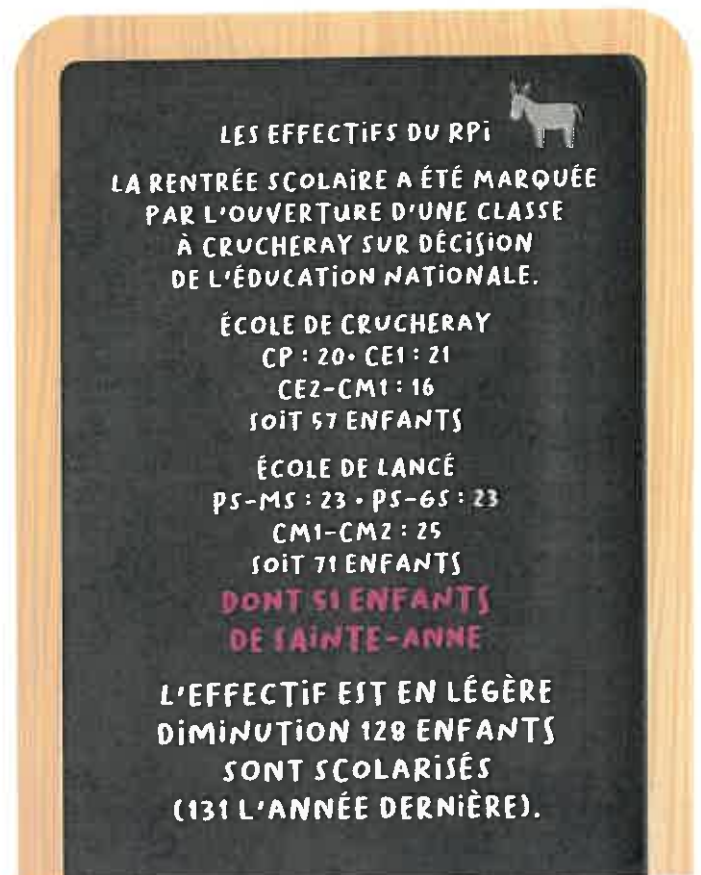 LES EFFECTIFS DU RPI
LA RENTRÉE SCOLAIRE A ÉTÉ MARQUÉE
PAR L'OUVERTURE D'UNE CLASSE
À CRUCHERAY SUR DÉCISION
DE L'ÉDUCATION NATIONALE.
ÉCOLE DE CRUCHERAY
CP : 20• CE1 : 21
CE2-CM1 : 16
SOIT 57 ENFANTS
ÉCOLE DE LANCÉ
PS-MS : 23 • PS-GS : 23
CM1-CM2 : 25
SOIT 71 ENFANTS
DONT 51 ENFANTS
DE SAINTE-ANNE
L'EFFECTIF EST EN LÉGÈRE
DIMINUTION 128 ENFANTS
SONT SCOLARISÉS
(131 L'ANNÉE DERNIÈRE).